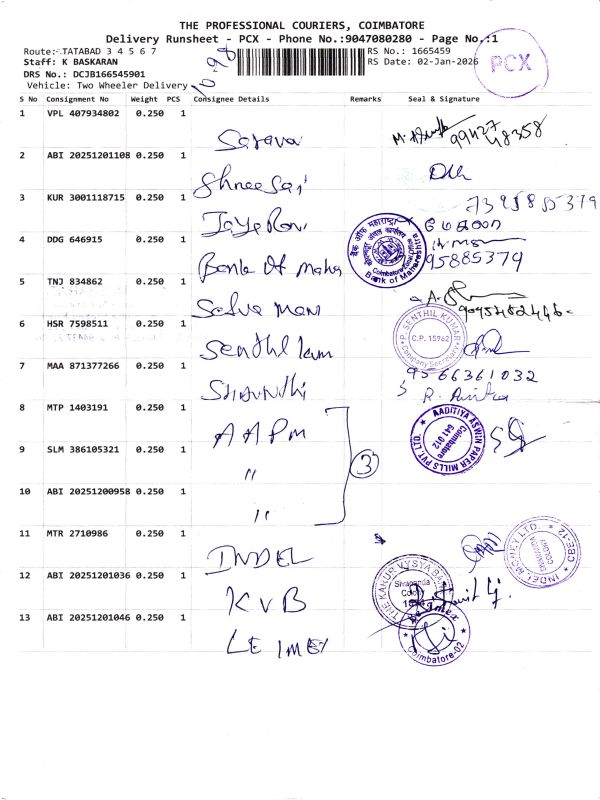 THE PROFESSIONAL COURIERS, COIMBATORE
Delivery Runsheet - PCX - Phone No.:9047080280 - Page No.:1
Route: TATABAD 3 4 5 6 7
RS No.: 1665459
Staff: K BASKARAN
RS Date: 02-Jan-2026
DRS No.: DCJB166545901
Vehicle: Two Wheeler Delivery
10.98
PCX
S No Consignment No Weight PCS Consignee Details Remarks Seal & Signature
1 VPL 407934802 0.250 1
Sarava
99427
48358
2 ABI 20251201108 0.250 1
Shree Sai
3 KUR 3001118715 0.250 1
Jaye Ram
4 DDG 646915 0.250 1
Bank Of Maha
95885379
Bank of Maharashtra
Coimbatore
5 TNJ 834862 0.250 1
Selva Mani
6 HSR 7598511 0.250 1
Senthil kum
P. SENTHIL KUMAR
C.P. 15962
Company Secretary
7 MAA 871377266 0.250 1
9566361032
8 MTP 1403191 0.250 1
AAPM
AADITIYA ASWIN PAPER MILLS PVT. LTD.
Coimbatore
641 012
9 SLM 386105321 0.250 1
"
3
10 ABI 20251200958 0.250 1
"
11 MTR 2710986 0.250 1
INDEL
INDEL MONEY LTD.
CBE-12
12 ABI 20251201036 0.250 1
KVB
THE KARUR VYSYA BANK
Sivananda
13 ABI 20251201046 0.250 1
LE IMEX
Le Imex
Coimbatore-02